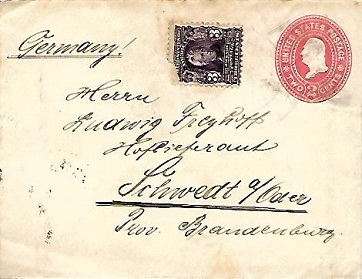 Germany!
UNITED STATES POSTAGE
TWO 2 CENTS
Herrn
Ludwig Freyhoff
Hoflieferant
Schwedt a/Oder
Prov. Brandenburg.